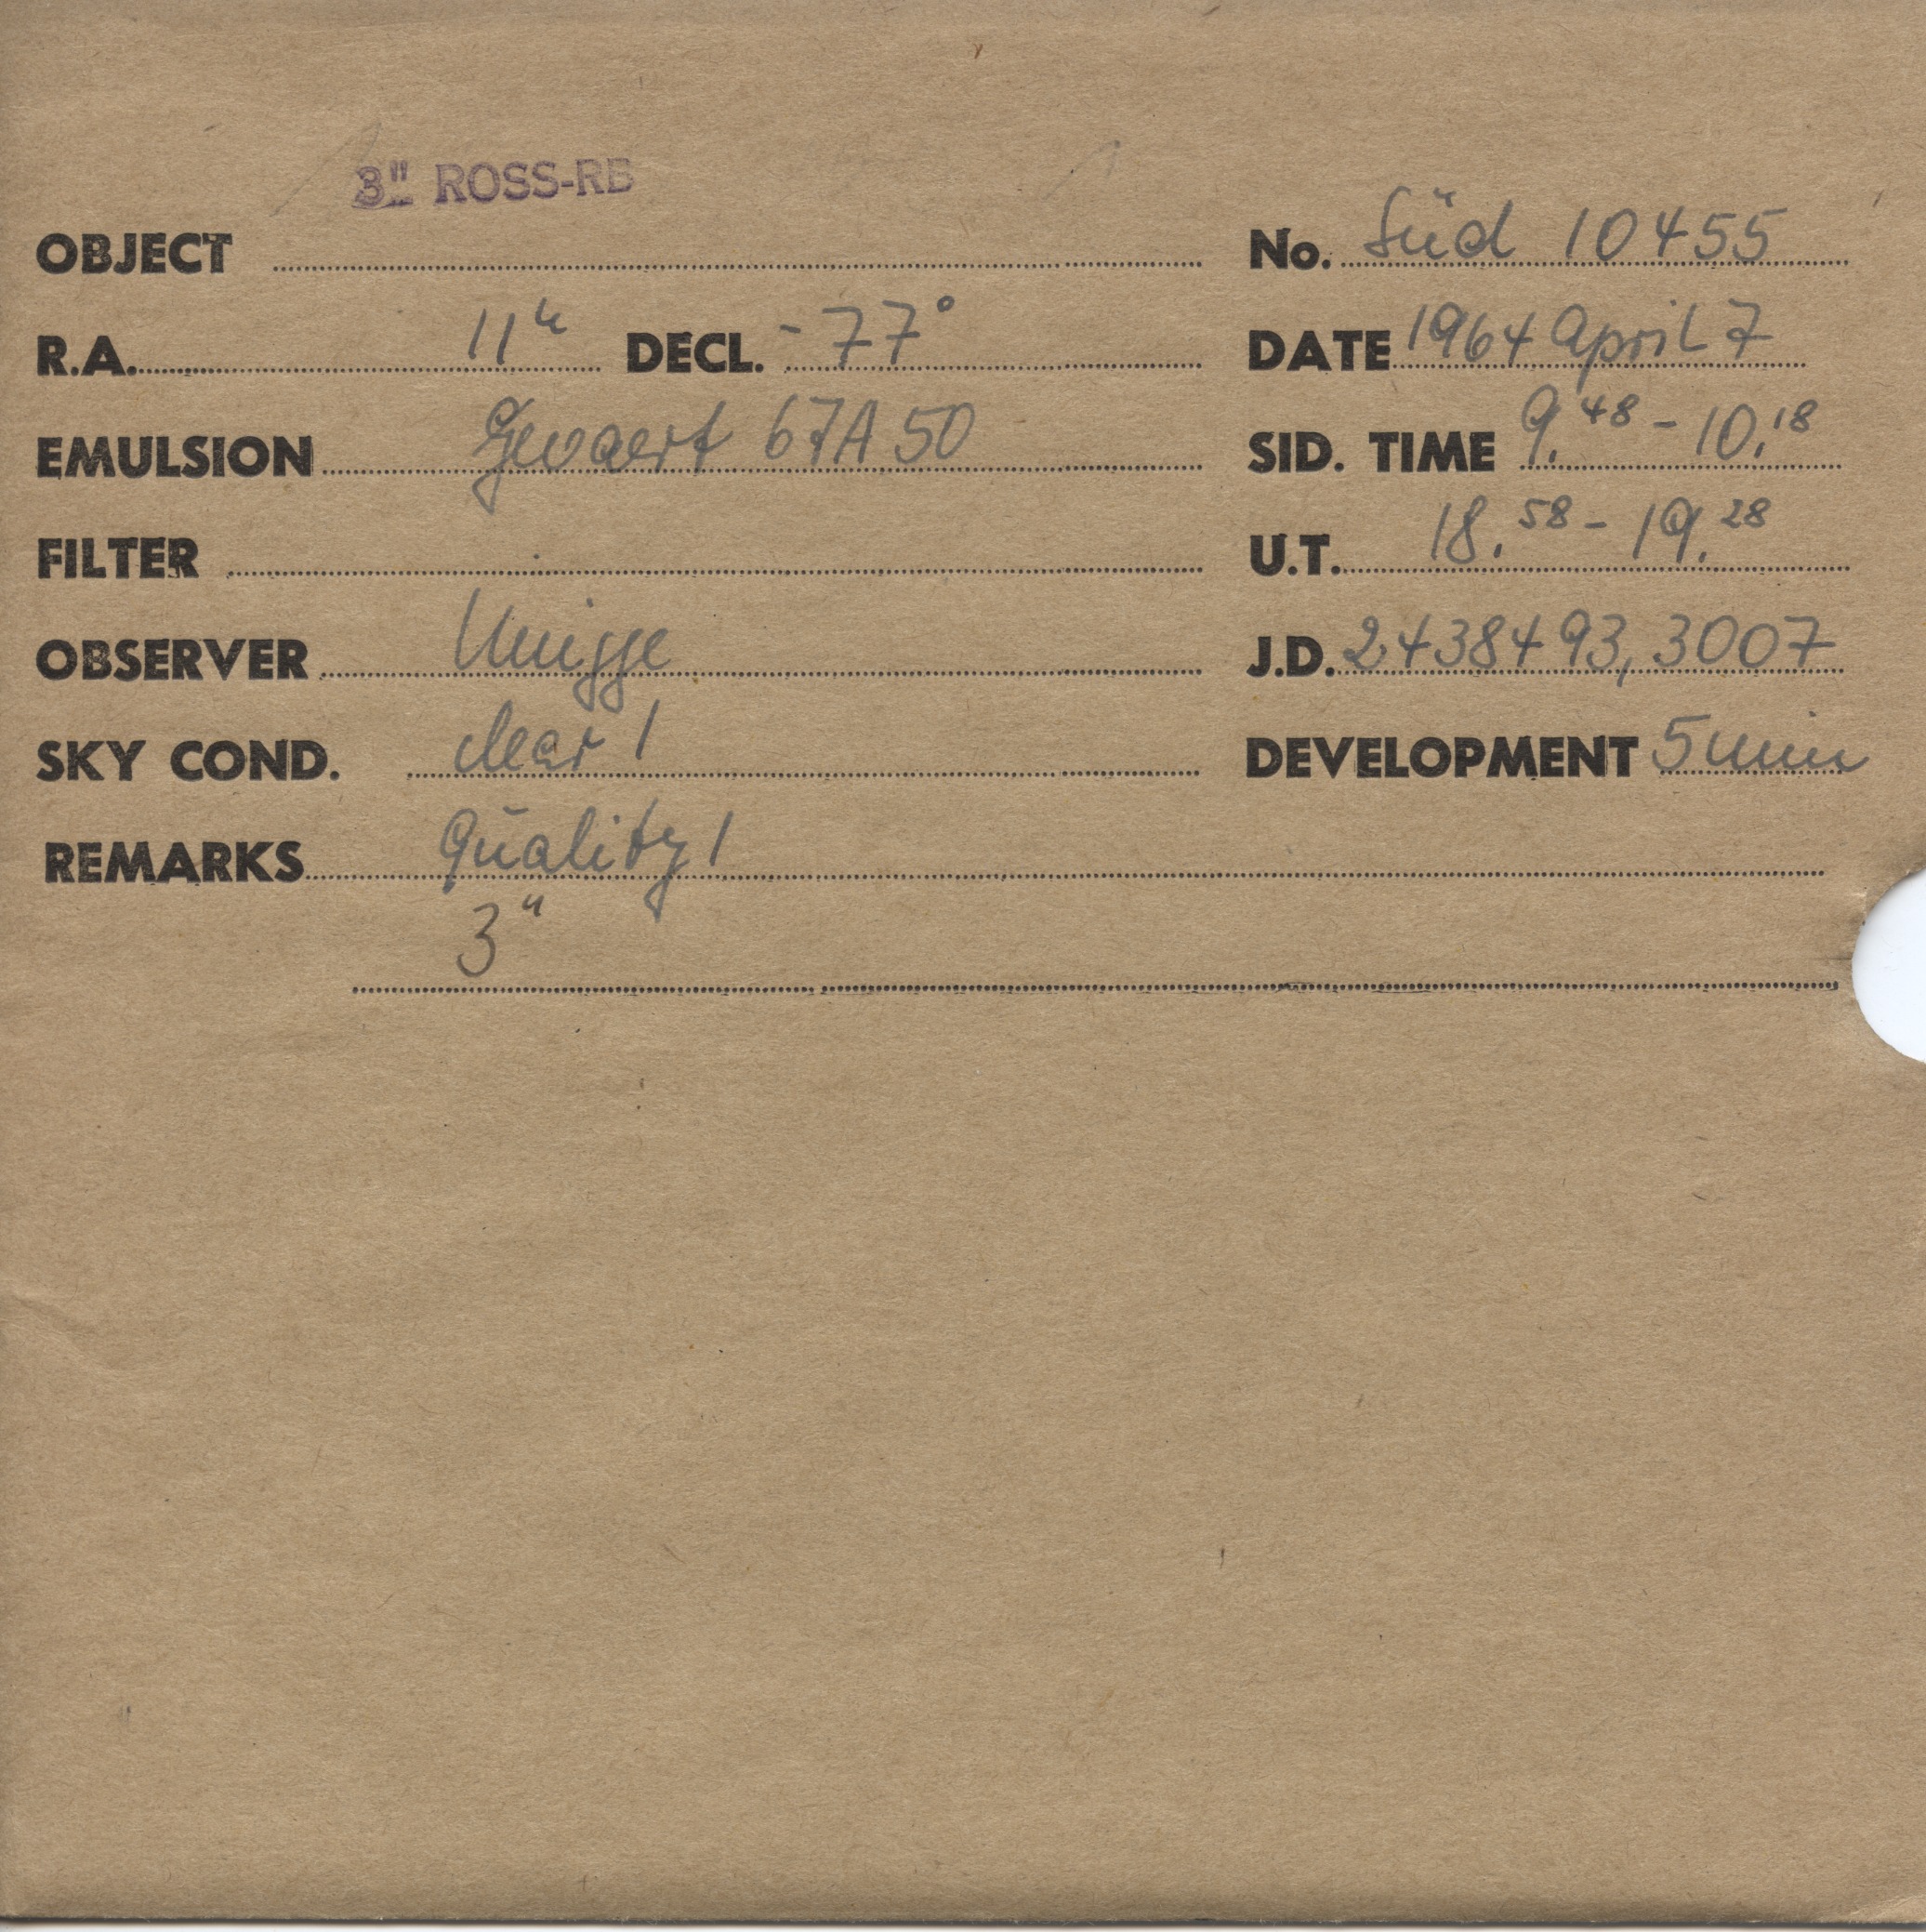 3" ROSS-RB
OBJECT No. Süd 10455
R.A. 11h DECL. -77° DATE 1964 April 7
EMULSION Gevaert 67A50 SID. TIME 9.48 - 10.18
FILTER U.T. 18.58 - 19.28
OBSERVER J.D. 2438493,3007
SKY COND. clear 1 DEVELOPMENT 5 min
REMARKS Quality 1
3"